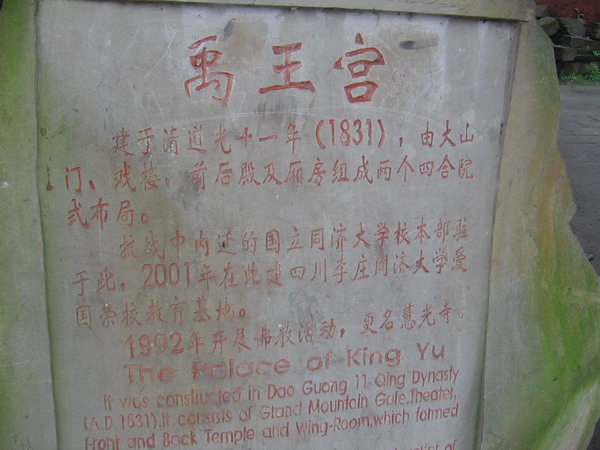 禹王宫
建于清道光十一年（1831），由大山
门、戏楼、前后殿及厢房组成两个四合院
式布局。
抗战中内迁的国立同济大学校本部驻
于此，2001年在此建四川李庄同济大学爱
国荣校教育基地。
1992年开展佛教活动，更名慧光寺。
The Palace of King Yu
It was constructed in Dao Guang 11 Qing Dynasty
(A.D 1831).It consists of Grand Mountain Gate,Theater,
and Back Temple and Wing-Room,which formed